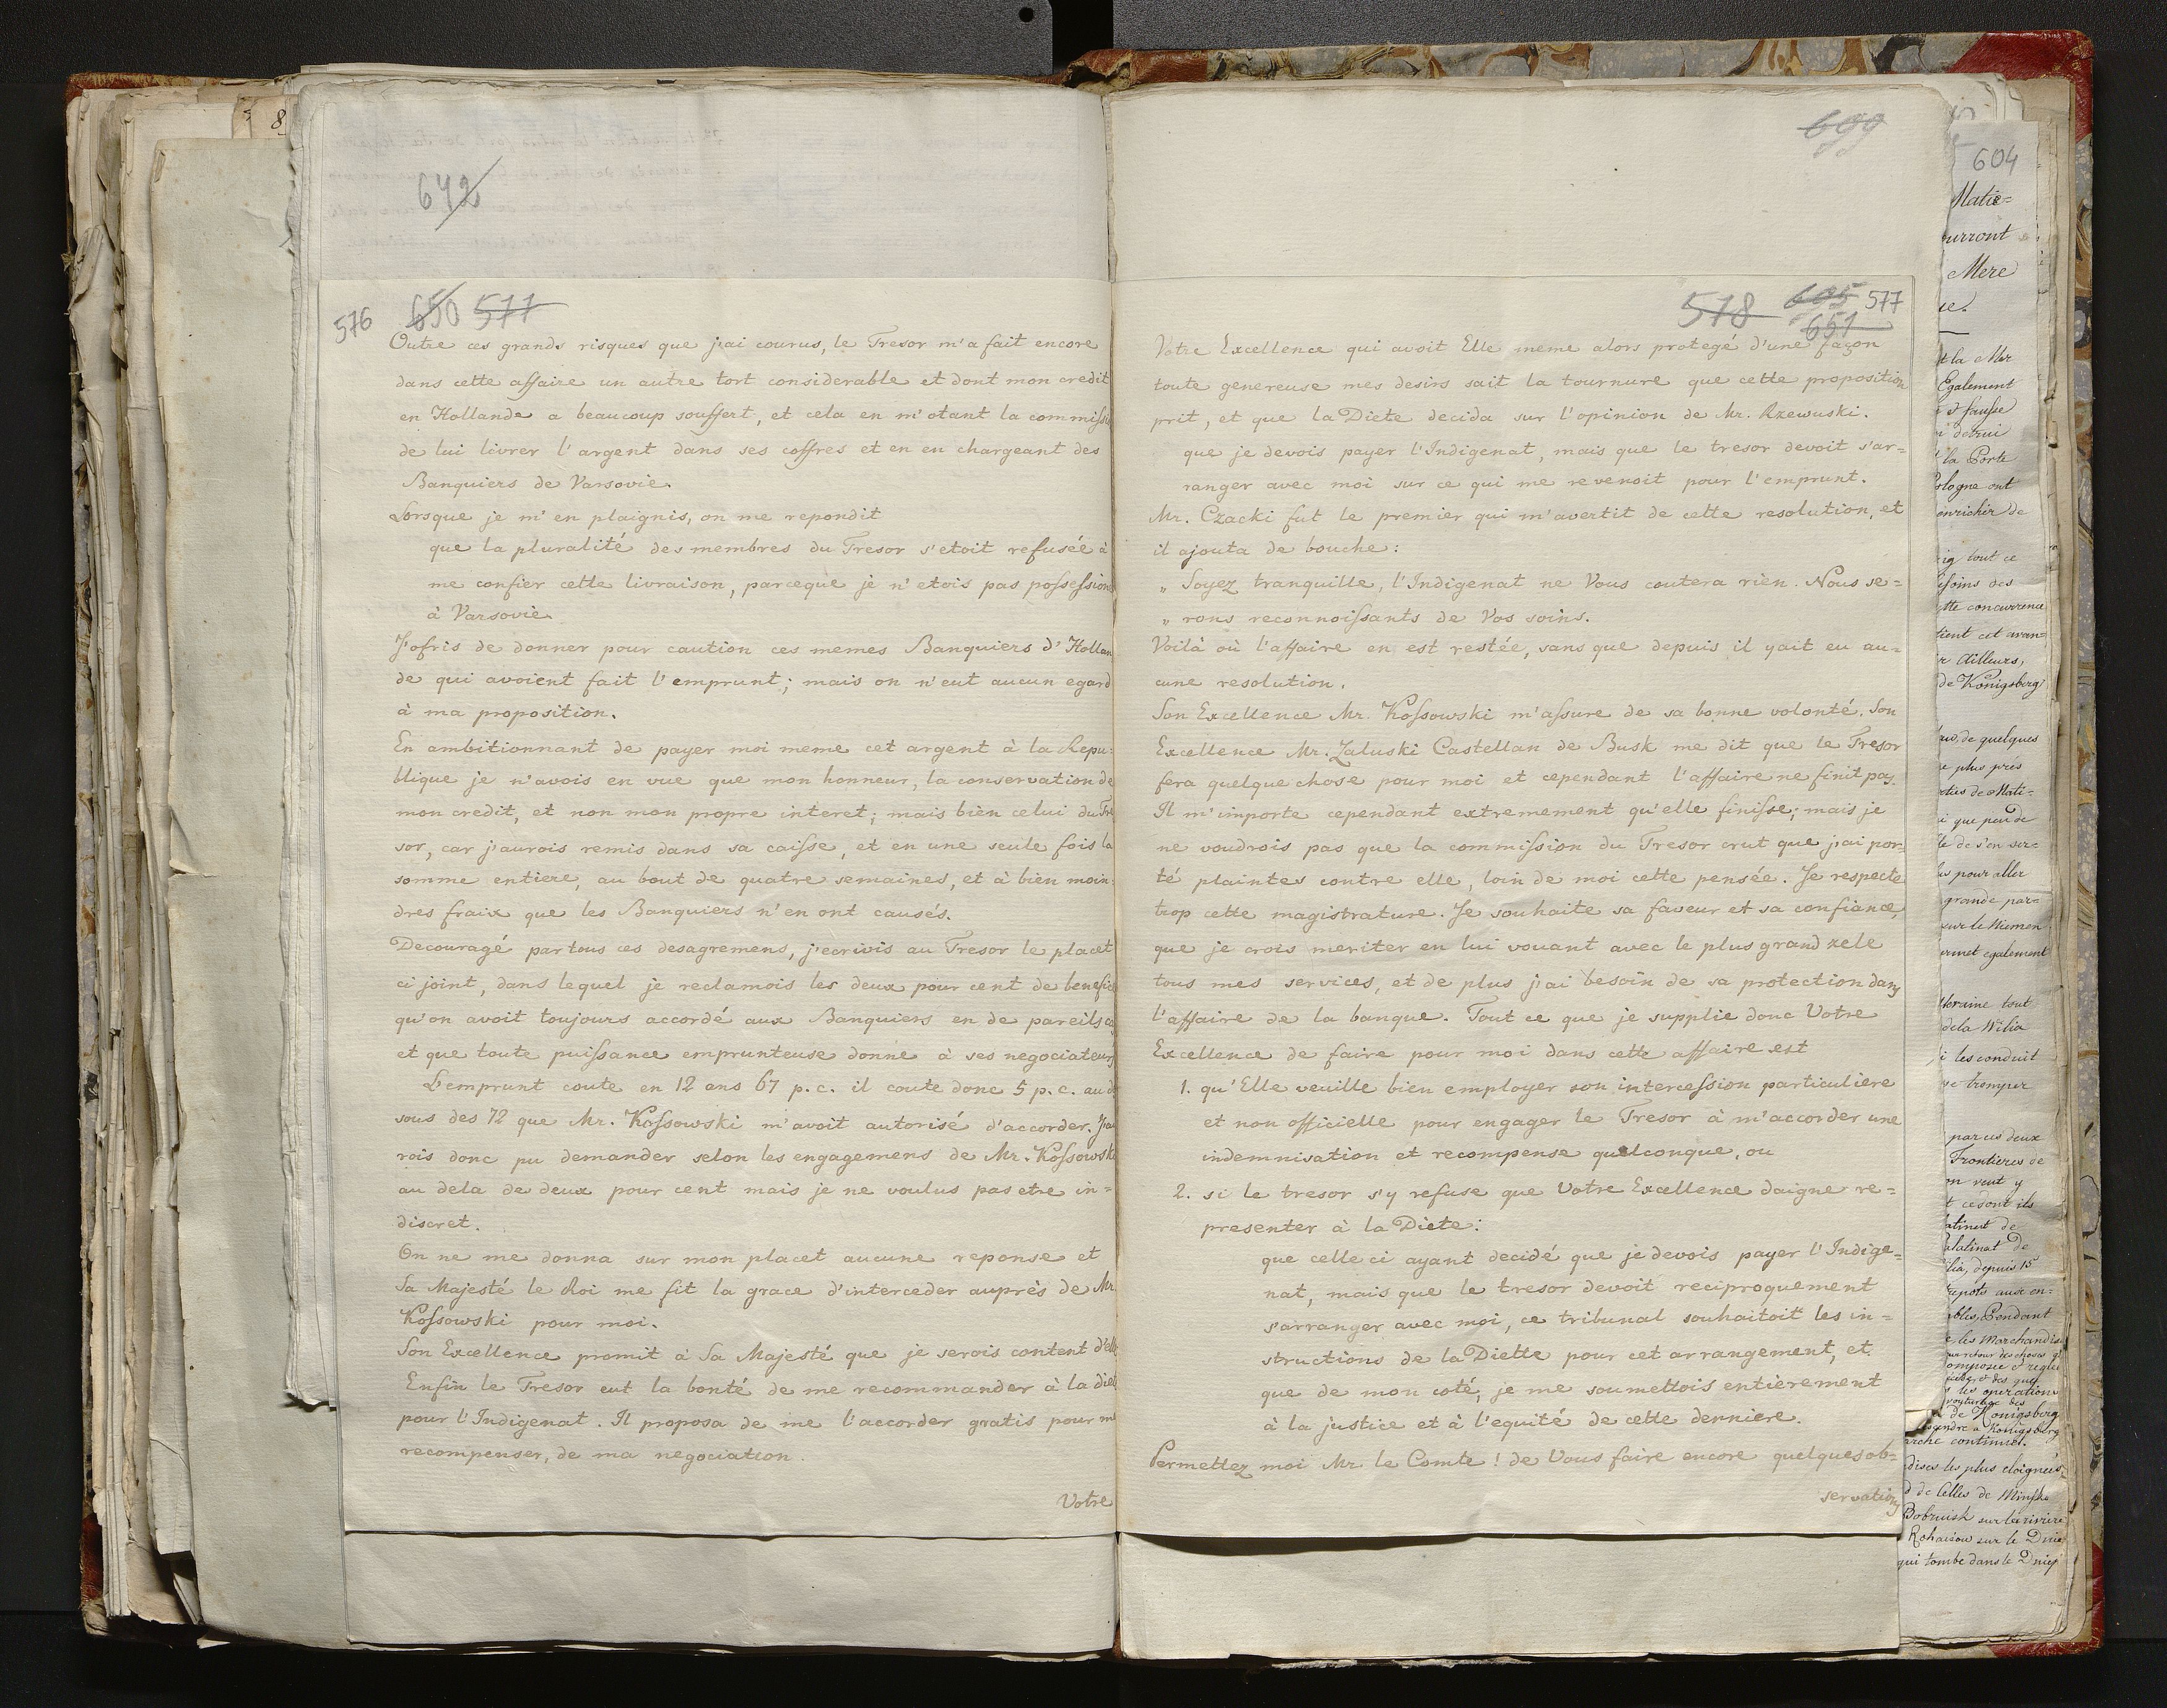 642
576 650 577
Outre ces grands risques que j'ai courus, le Tresor m'a fait encore
dans cette affaire un autre tort considerable et dont mon credit
en Hollande a beaucoup souffert, et cela en m'otant la commissi
de lui livrer l'argent dans ses coffres et en en chargeant des
Banquiers de Varsovie.
Lorsque je m'en plaignis, on me repondit
que la pluralité des membres du Tresor s'etoit refusée à
me confier cette livraison, parceque je n'etois pas possession
à Varsovie.
J'ofris de donner pour caution ces memes Banquiers d'Hollan
de qui avoient fait l'emprunt; mais on n'eut aucun egard
à ma proposition.
En ambitionnant de payer moi meme cet argent à la Repu=
blique je n'avois en vue que mon honneur, la conservation de
mon credit, et non mon propre interet; mais bien celui du Tre
sor, car j'aurois remis dans sa caisse, et en une seule fois la
somme entiere, au bout de quatre semaines, et à bien moin=
dres fraix que les Banquiers n'en ont causés.
Decouragé par tous ces desagremens, j'ecrivis au Tresor le placet
ci joint, dans lequel je reclamois les deux pour cent de benefice
qu'on avoit toujours accordé aux Banquiers en de pareils cas
et que toute puissance emprunteuse donne à ses negociateurs
L'emprunt coute en 12 ans 67 p.c. il coute donc 5 p.c. au de
sous des 72 que Mr. Kossowski m'avoit autorisé d'accorder. J'au
rois donc pu demander selon les engagemens de Mr. Kossowski
au dela de deux pour cent mais je ne voulus pas etre in=
discret.
On ne me donna sur mon placet aucune reponse et
Sa Majesté le Roi me fit la grace d'interceder auprès de Mr
Kossowski pour moi.
Son Excellence promit à Sa Majesté que je serois content d'elle
Enfin le Tresor eut la bonté de me recommander à la diete
pour l'Indigenat. Il proposa de me l'accorder gratis pour me
recompenser, de ma negociation.
Votre
699
578 605 577
651
Votre Excellence qui avoit Elle meme alors protegé d'une façon
toute genereuse mes desirs sait la tournure que cette proposition
prit, et que la Diete decida sur l'opinion de Mr. Rzewuski.
que je devois payer l'Indigenat, mais que le tresor devoit s'ar=
ranger avec moi sur ce qui me revenoit pour l'emprunt.
Mr. Czacki fut le premier qui m'avertit de cette resolution, et
il ajouta de bouche:
„ Soyez tranquille, l'Indigenat ne Vous coutera rien. Nous se=
„ rons reconnoissants de Vos soins.
Voilà où l'affaire en est restée, sans que depuis il y ait eu au=
cune resolution.
Son Excellence Mr. Kossowski m'assure de sa bonne volonté. Son
Excellence Mr. Zaluski Castellan de Busk me dit que le Tresor
fera quelque chose pour moi et cependant l'affaire ne finit pas.
Il m'importe cependant extremement qu'elle finisse; mais je
ne voudrois pas que la commission du Tresor crut que j'ai por=
té plaintes contre elle, loin de moi cette pensée. Je respecte
trop cette magistrature. Je souhaite sa faveur et sa confiance,
que je crois meriter en lui vouant avec le plus grand zele
tous mes services, et de plus j'ai besoin de sa protection dans
l'affaire de la banque. Tout ce que je supplie donc Votre
Excellence de faire pour moi dans cette affaire est
1. qu'Elle veuille bien employer son intercession particuliere
et non officielle pour engager le Tresor à m'accorder une
indemnisation et recompense quelconque, ou
2. si le tresor s'y refuse que Votre Excellence daigne re=
presenter à la Diete:
que celle ci ayant decidé que je devois payer l'Indige=
nat, mais que le tresor devoit reciproquement
s'arranger avec moi, ce tribunal souhaitoit les in=
structions de la Diette pour cet arrangement, et
que de mon coté, je me soumettois entièrement
à la justice et à l'equité de cette derniere.
Permettez moi Mr. le Comte! de Vous faire encore quelques ob=
servations
604
Matie=
urront
Mere
ue.
t la Mer
Egalement
detrui
la Porte
ologne ont
enrichir de
ig tout ce
soins des
tte concurrence
tient cet avan=
r Ailleurs,
de Königsberg
de quelques
e plus près
ties de Mati=
i que peu de
lé de s'en ser=
pour aller
grande par=
sur le Niemen
ermet egalement
kraine tout
de la Wilia
i les conduit
se tromper
par ces deux
Frontieres de
on veut y
t ce dont ils
latinat de
alatinat de
lia, depuis 15
trepôts aux en=
ables, Pendant
e les Marchandise
de Konigsberg
arche continuel.
dises les plus eloignées
d de Celles de Minsk
Bobruisk sur la riviere
Rohaczow sur le Dnie
qui tombe dans le Dniep